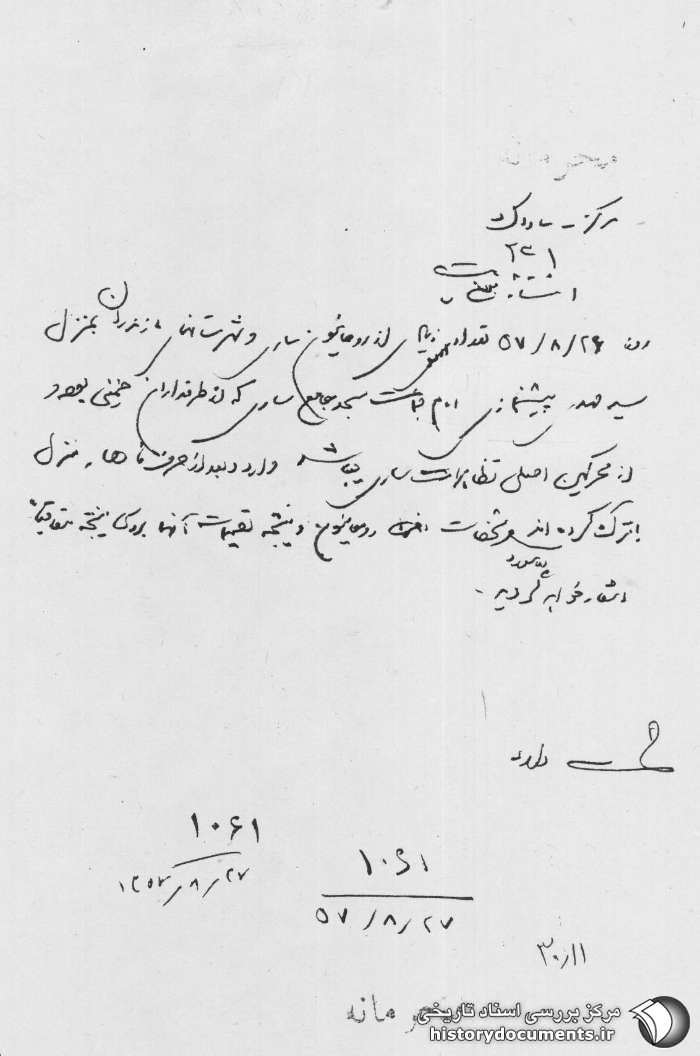 محرمانه
مرکز - ساواک
۳۲۱
روز ۵۷/۸/۲۶ تعداد زیادی از روحانیون ساری و شهرستانهای مازندران بمنزل
سید صدر پیشنماز امام جماعت مسجد جامع ساری که از طرفداران خمینی بوده و
از محرکین اصلی تظاهرات ساری میباشد وارد و بعد از صرف ناهار منزل
را ترک کرده اند مشخصات روحانیون و نتیجه تصمیمات آنها متعاقباً
خواهد گردید.
۱۰۶۱
۱۳۵۷/۸/۲۷
۱۰۶۱
۵۷/۸/۲۷
۳۰/۱۱
محرمانه
مرکز بررسی اسناد تاریخی
historydocuments.ir